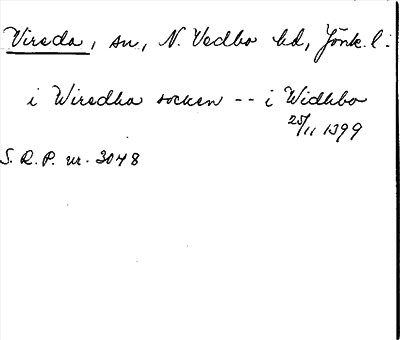 Vireda, sn, N. Vedbo hd, Jönk. l.
i Wiredha socken -- i Widhbo
25/11 1399
S.R.P. nr. 3048